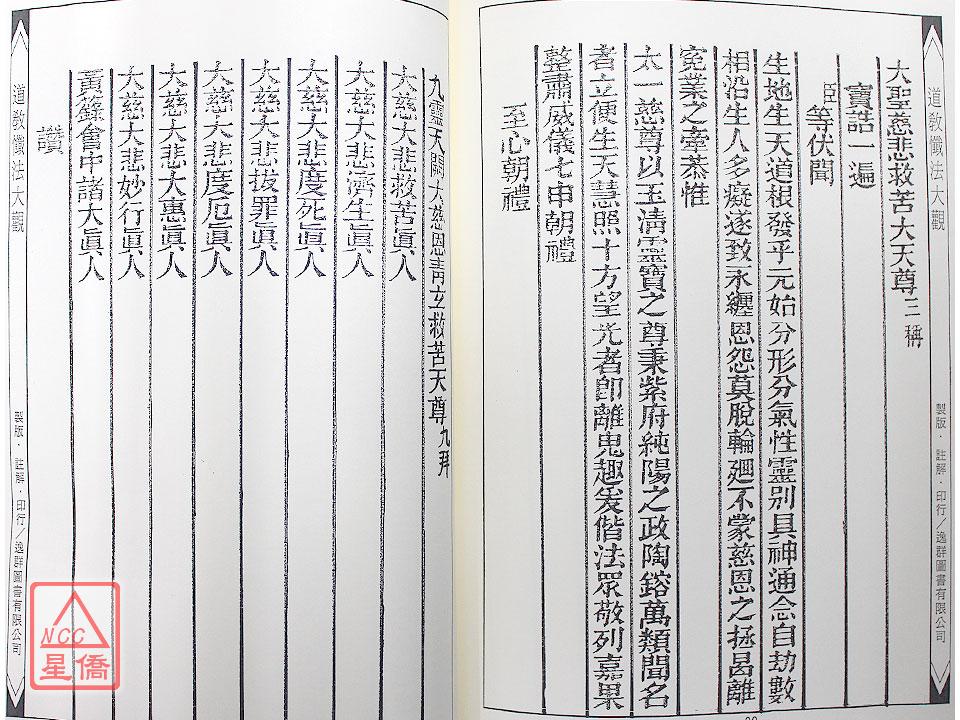 道教懺法大觀
製版．註解．印行／逸群圖書有限公司
大聖慈悲救苦大天尊三稱
寶誥一遍
臣等伏聞
生地生天道根發乎元始分形分氣性靈別具神通念自劫數
相沿生人多癡遂致永纏恩怨莫脫輪廻不蒙慈恩之拯曷離
寃業之牽恭惟
太一慈尊以玉清靈寶之尊秉紫府純陽之政陶鎔萬類聞名
者立便生天慧照十方望光者卽離鬼趣爰偕法眾敬列嘉果
整肅威儀七申朝禮
至心朝禮
九靈天闕大慈恩青玄救苦天尊九拜
大慈大悲救苦眞人
大慈大悲濟生眞人
大慈大悲度死眞人
大慈大悲拔罪眞人
大慈大悲度厄眞人
大慈大悲大惠眞人
大慈大悲妙行眞人
黃籙會中諸大眞人
讚
道教懺法大觀
製版．註解．印行／逸群圖書有限公司
NCC
星僑